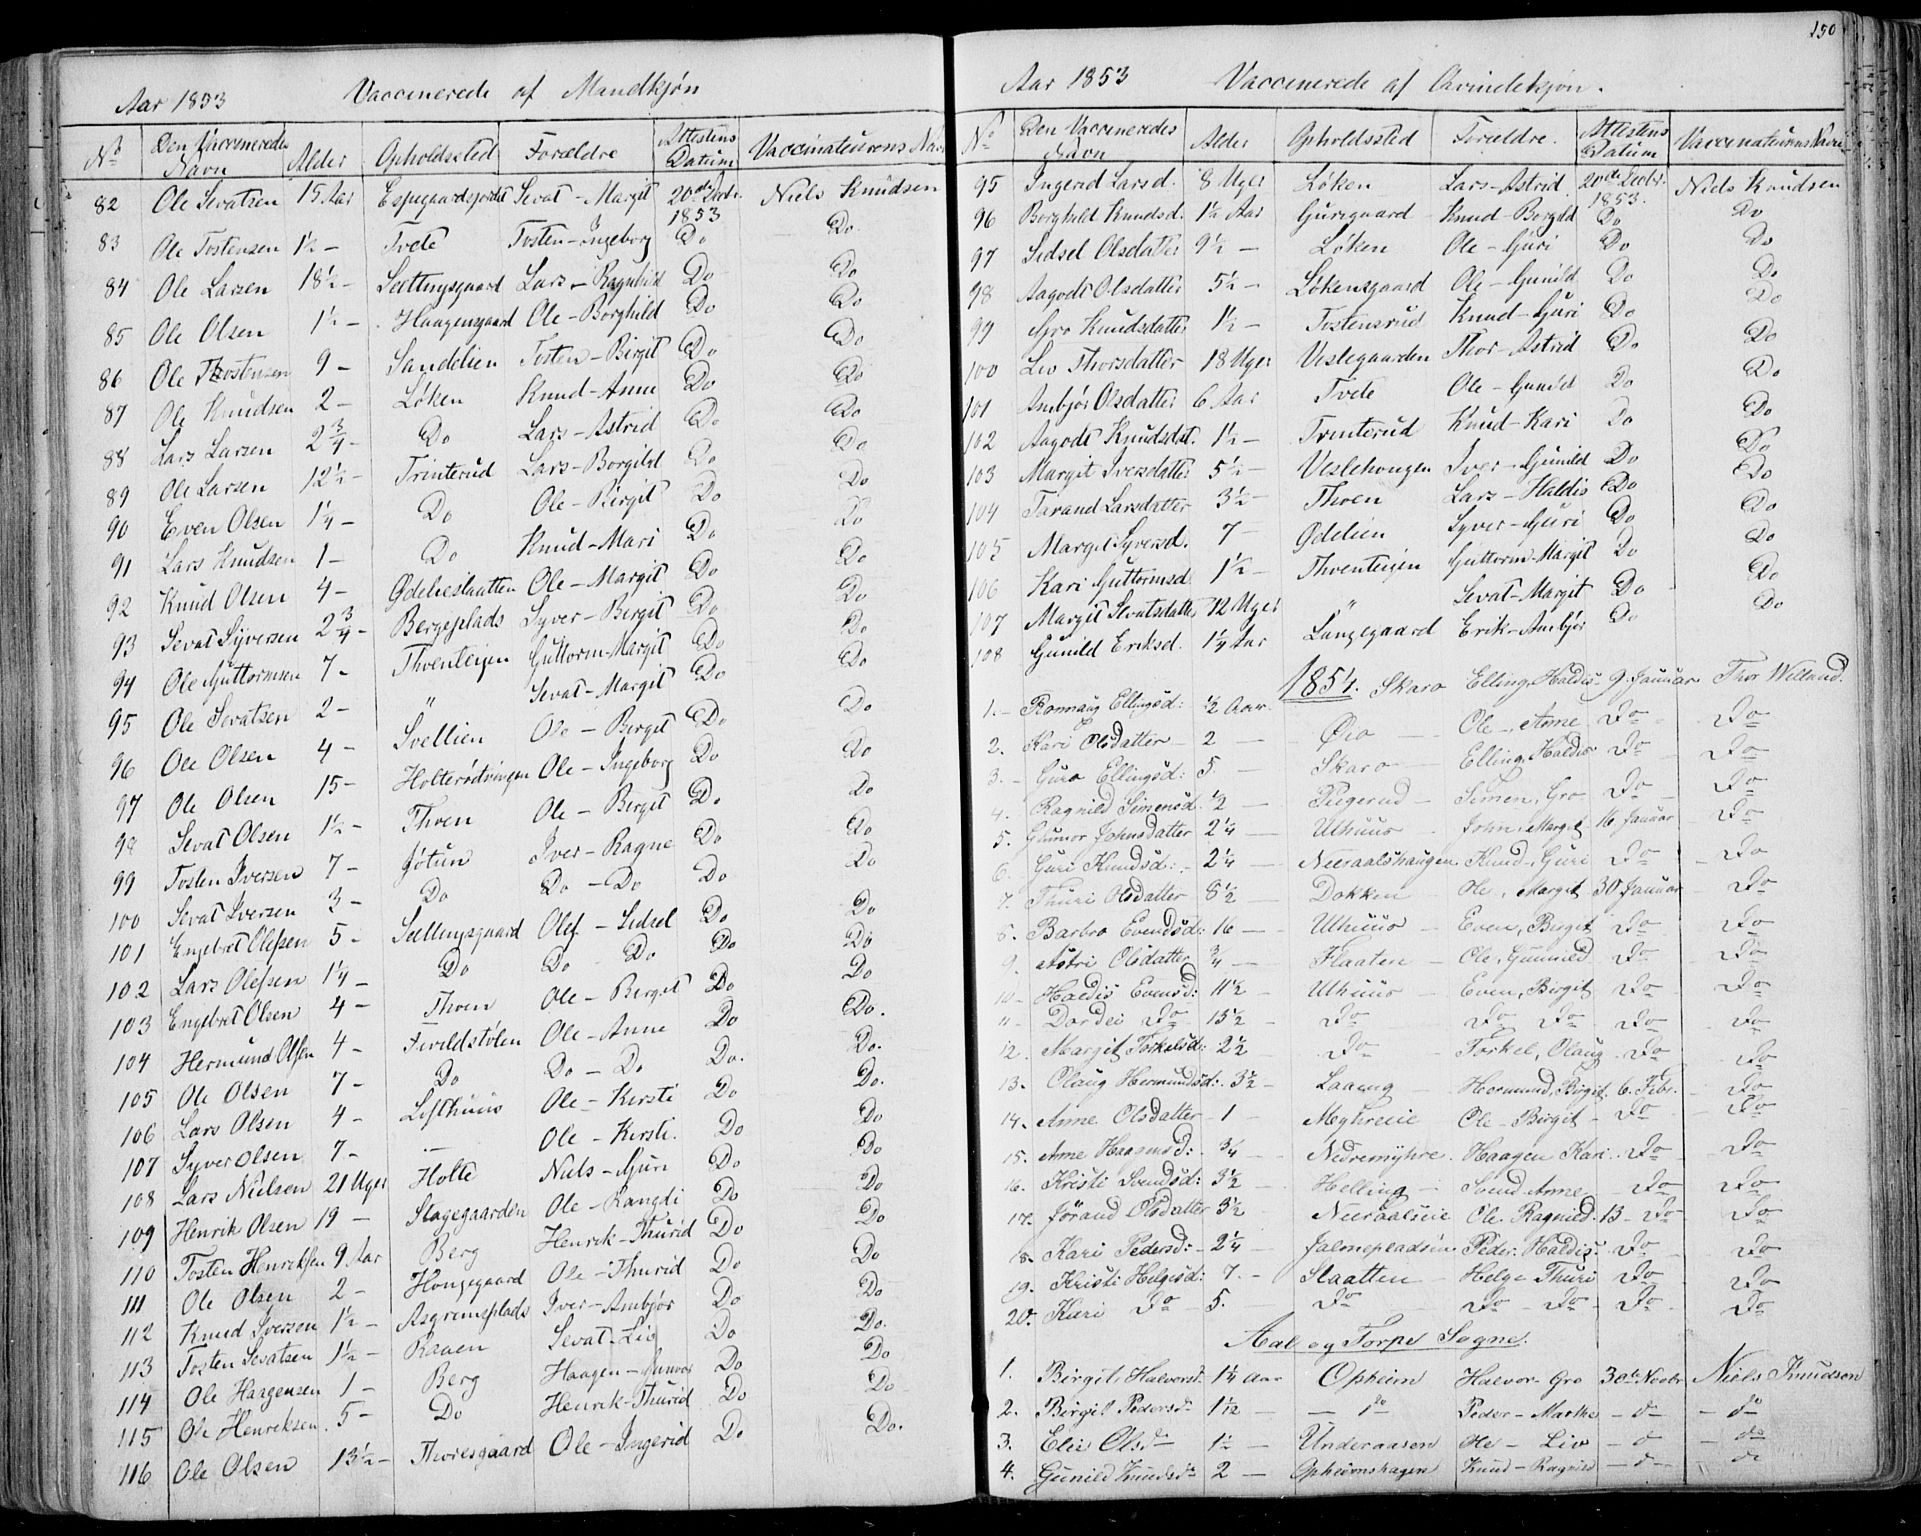 150
Aar 1853 Vaccinerede af Mandkjøn
No Den Vaccineredes Navn Alder Opholdssted Forældre Attestens Datum Vaccinateurens Navn
82 Ole Sevatsen 15 Aar Espegaardsjordet Sevat - Margit 20de Decbr. 1853 Niels Knudsen
83 Ole Tostensen 1½ - Tvete Tosten - Ingeborg Do Do
84 Ole Larsen 18½ - Sættingsgaard Lars - Ragnhild Do Do
85 Ole Olsen 1½ - Haagensgaard Ole - Borghild Do Do
86 Ole Thostensen 9 - Sandelien Tosten - Birgit Do Do
87 Ole Knudsen 2 - Løken Knud - Anne Do Do
88 Lars Larsen 2¾ - Do Lars - Astrid Do Do
89 Ole Larsen 12½ - Trinterud Lars - Borgild Do Do
90 Even Olsen 1¼ - Do Ole - Birgit Do Do
91 Lars Knudsen 1 - Do Knud - Mari Do Do
92 Knud Olsen 4 - Ødelieslaatten Ole - Margit Do Do
93 Sevat Syversen 2¾ - Bergeplads Syver - Bergit Do Do
94 Ole Guttormsen 7 - Thventeigen Guttorm - Margit Do Do
95 Ole Sevatsen 2 - " Sevat - Margit Do Do
96 Ole Olsen 4 - Svellien Ole - Bergit Do Do
97 Ole Olsen 15 - Holterødtvingen Ole - Ingeborg Do Do
98 Sevat Olsen 1½ - Thoen Ole - Bergit Do Do
99 Tosten Iversen 7 - Gøtun Iver - Ragne Do Do
100 Sevat Iversen 3 - Do Do - Do Do Do
101 Engebret Olefsen 5 - Sættingsgaard Olef - Sidsel Do Do
102 Lars Olefsen 1¼ - Do Do - Do Do Do
103 Engebret Olsen 4 - Thoen Ole - Bergit Do Do
104 Hermund Olsen 4 - Ole - Anne Do Do.
105 Ole Olsen 7 - Do Do - Do Do. Do.
106 Lars Olsen 4 - Lesthuus Ole - Kersti Do Do.
107 Syver Olsen 7 - — Ole - Kersti. Do Do
108 Lars Nielsen 21 Uger Holte Niels - Guri Do Do
109 Henrik Olsen 19 - Slagegaarden Ole - Rangdi Do Do
110 Tosten Henriksen 9 Aar Berg Henrik - Thurid Do Do
111 Ole Olsen 2 - Hougegaard Ole - Thurid Do Do
112 Knud Iversen 1½ - Asgrimsplads Iver - Ambjør Do Do
113 Tosten Sevatsen 1½ - Raaen Sevat - Liv Do Do.
114 Ole Haagensen 1 - Berg Haagen - Gunvor Do Do
115 Ole Henriksen. 5 - Do Henrik - Thurid Do Do
116 Ole Olsen 13½ - Thoresgaard Ole - Ingerid Do Do.
Aar 1853 Vaccinerede af Qvindekjøn.
No Den Vaccineredes Navn Alder Opholdssted Forældre. Attestens Datum Vaccinateurens Navn
95 Ingerid Larsd. 8 Uger Løken Lars - Astrid 20de Decbr. 1853. Niels Knudsen
96 Borghild Knudsd. 1½ Aar Guregaard Knud - Borgild Do Do
97 Sidsel Olsdatter 9½ - Løken Ole - Guri Do Do
98 Aagodt Olsdatter 5½ - Løkensgaard Ole - Gunild Do Do
99 Gro Knudsdatter 1½ - Tostensrud Knud - Guri Do Do
100 Liv Thorsdatter 18 Uger Veslegaarden Thor - Astrid Do Do
101 Ambjør Olsdatter 6 Aar Tvete Ole - Gunild Do Do
102 Aagodt Knudsdat. 1½ - Trinterud Knud - Kari Do Do
103 Margit Iversdatter 5½ - Veslehougen Iver - Gunild Do Do
104 Tarand Larsdatter 3½ - Thoen Lars - Haldis Do Do
105 Margit Syversd. 7 - Ødelien Syver - Guri Do Do
106 Kari Guttormsd 1½ - Thventeigen Guttorm - Margit Do Do
107 Margit Sevatsdatter 12 Uger " Sevat - Margit Do Do
108 Gunild Eriksd. 1¼ Aar Langegaard Erik - Ambjør Do Do
1854.
1. - Ronnaug Ellingsd: ½ Aar. Skaro Elling, Haldis 9. Januar Thor Wellaud.
2. Kari Olsdatter 2 — Øio Ole, Anne Do Do
3. - Guro Ellingsd: 5. — Skaro Elling, Haldis Do Do
4. Ragnild Simensd. ½ — Simen, Gro Do Do
5. Gunnor Johnsdatter 2¼ — Uthuus John, Marget 16 Januar Do
6. Guri Knudsd: 2¼ — Neeraalshaugen Knud, Guri Do Do
7. Thuri Olsdatter 8½ — Dokken Ole, Margit 30 Januar Do
8. Barbro Evensd: 16 — Uthuus Even, Birgit Do Do
9. Astri Olsdatter ¾ — Flaaten Ole, Gunnild Do Do
10. Haldis Evensd: 11½ - Uthuus Even, Birgit Do Do
11. Dordei Do 15½ - Do Do Do Do Do
12. Margit Torkelsd: 2½ Do Torkel, Olaug Do Do
13. Olaug Hermundsd: 3½ - Laaeng Hermund, Birgit. 6. Febr. Do
14. Anne Olsdatter 1 - Myhreeie Ole - Birgit Do Do
15. Anne Haagensd: ¾ - Nedremyhre. Haagen Kari. Do Do
16. Kristi Svendsd: 3½ - Helling Svend Anne Do Do
17. Jørand Olsdatter 3½ Neeraalseie Ole. Ragnild. 13 Do Do
18. Kari Pedersd: 2¼ - Peder. Haldis Do Do
19. Kristi Helgesd: 7. - Slaatten Helge Thuri Do Do
20. Kari Do 5. Do Do Do Do Do
Aal og Torpe Sogne.
1. Birgit Halvorsd. 1¼ Aar Opheim Halvor - Gro 30te Novbr Niels Knudsen
2. Birgit Pedersdr 1½ — do Peder - Marthe - d - do
3. Elie Olsdr 1½ — Underaasen Ole - Liv - d - do
4. Gunild Knudsdr 2 — Opheimshagen Knud - Ragnild - d - do